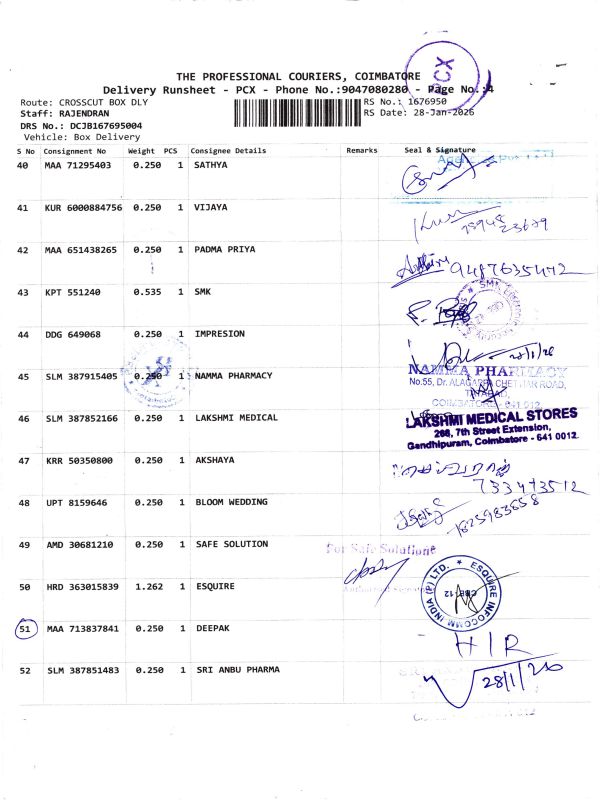 PCX
THE PROFESSIONAL COURIERS, COIMBATORE
Delivery Runsheet - PCX - Phone No.:9047080280 - Page No.:4
Route: CROSSCUT BOX DLY
RS No.: 1676950
Staff: RAJENDRAN
RS Date: 28-Jan-2026
DRS No.: DCJB167695004
Vehicle: Box Delivery
S No Consignment No Weight PCS Consignee Details Remarks Seal & Signature
40 MAA 71295403 0.250 1 SATHYA
41 KUR 6000884756 0.250 1 VIJAYA
42 MAA 651438265 0.250 1 PADMA PRIYA 9487635472
43 KPT 551240 0.535 1 SMK
44 DDG 649068 0.250 1 IMPRESION
45 SLM 387915405 0.250 1 NAMMA PHARMACY
NAMMA PHARMACY
No.55, Dr. ALAGAPPA CHETTIAR ROAD,
46 SLM 387852166 0.250 1 LAKSHMI MEDICAL
LAKSHMI MEDICAL STORES
268, 7th Street Extension,
Gandhipuram, Coimbatore - 641 0012.
47 KRR 50350800 0.250 1 AKSHAYA
733473512
48 UPT 8159646 0.250 1 BLOOM WEDDING
49 AMD 30681210 0.250 1 SAFE SOLUTION
For Safe Solutions
50 HRD 363015839 1.262 1 ESQUIRE
ESQUIRE INFOCOMM INDIA (P) LTD.
CBE-12
51 MAA 713837841 0.250 1 DEEPAK
H/R
52 SLM 387851483 0.250 1 SRI ANBU PHARMA